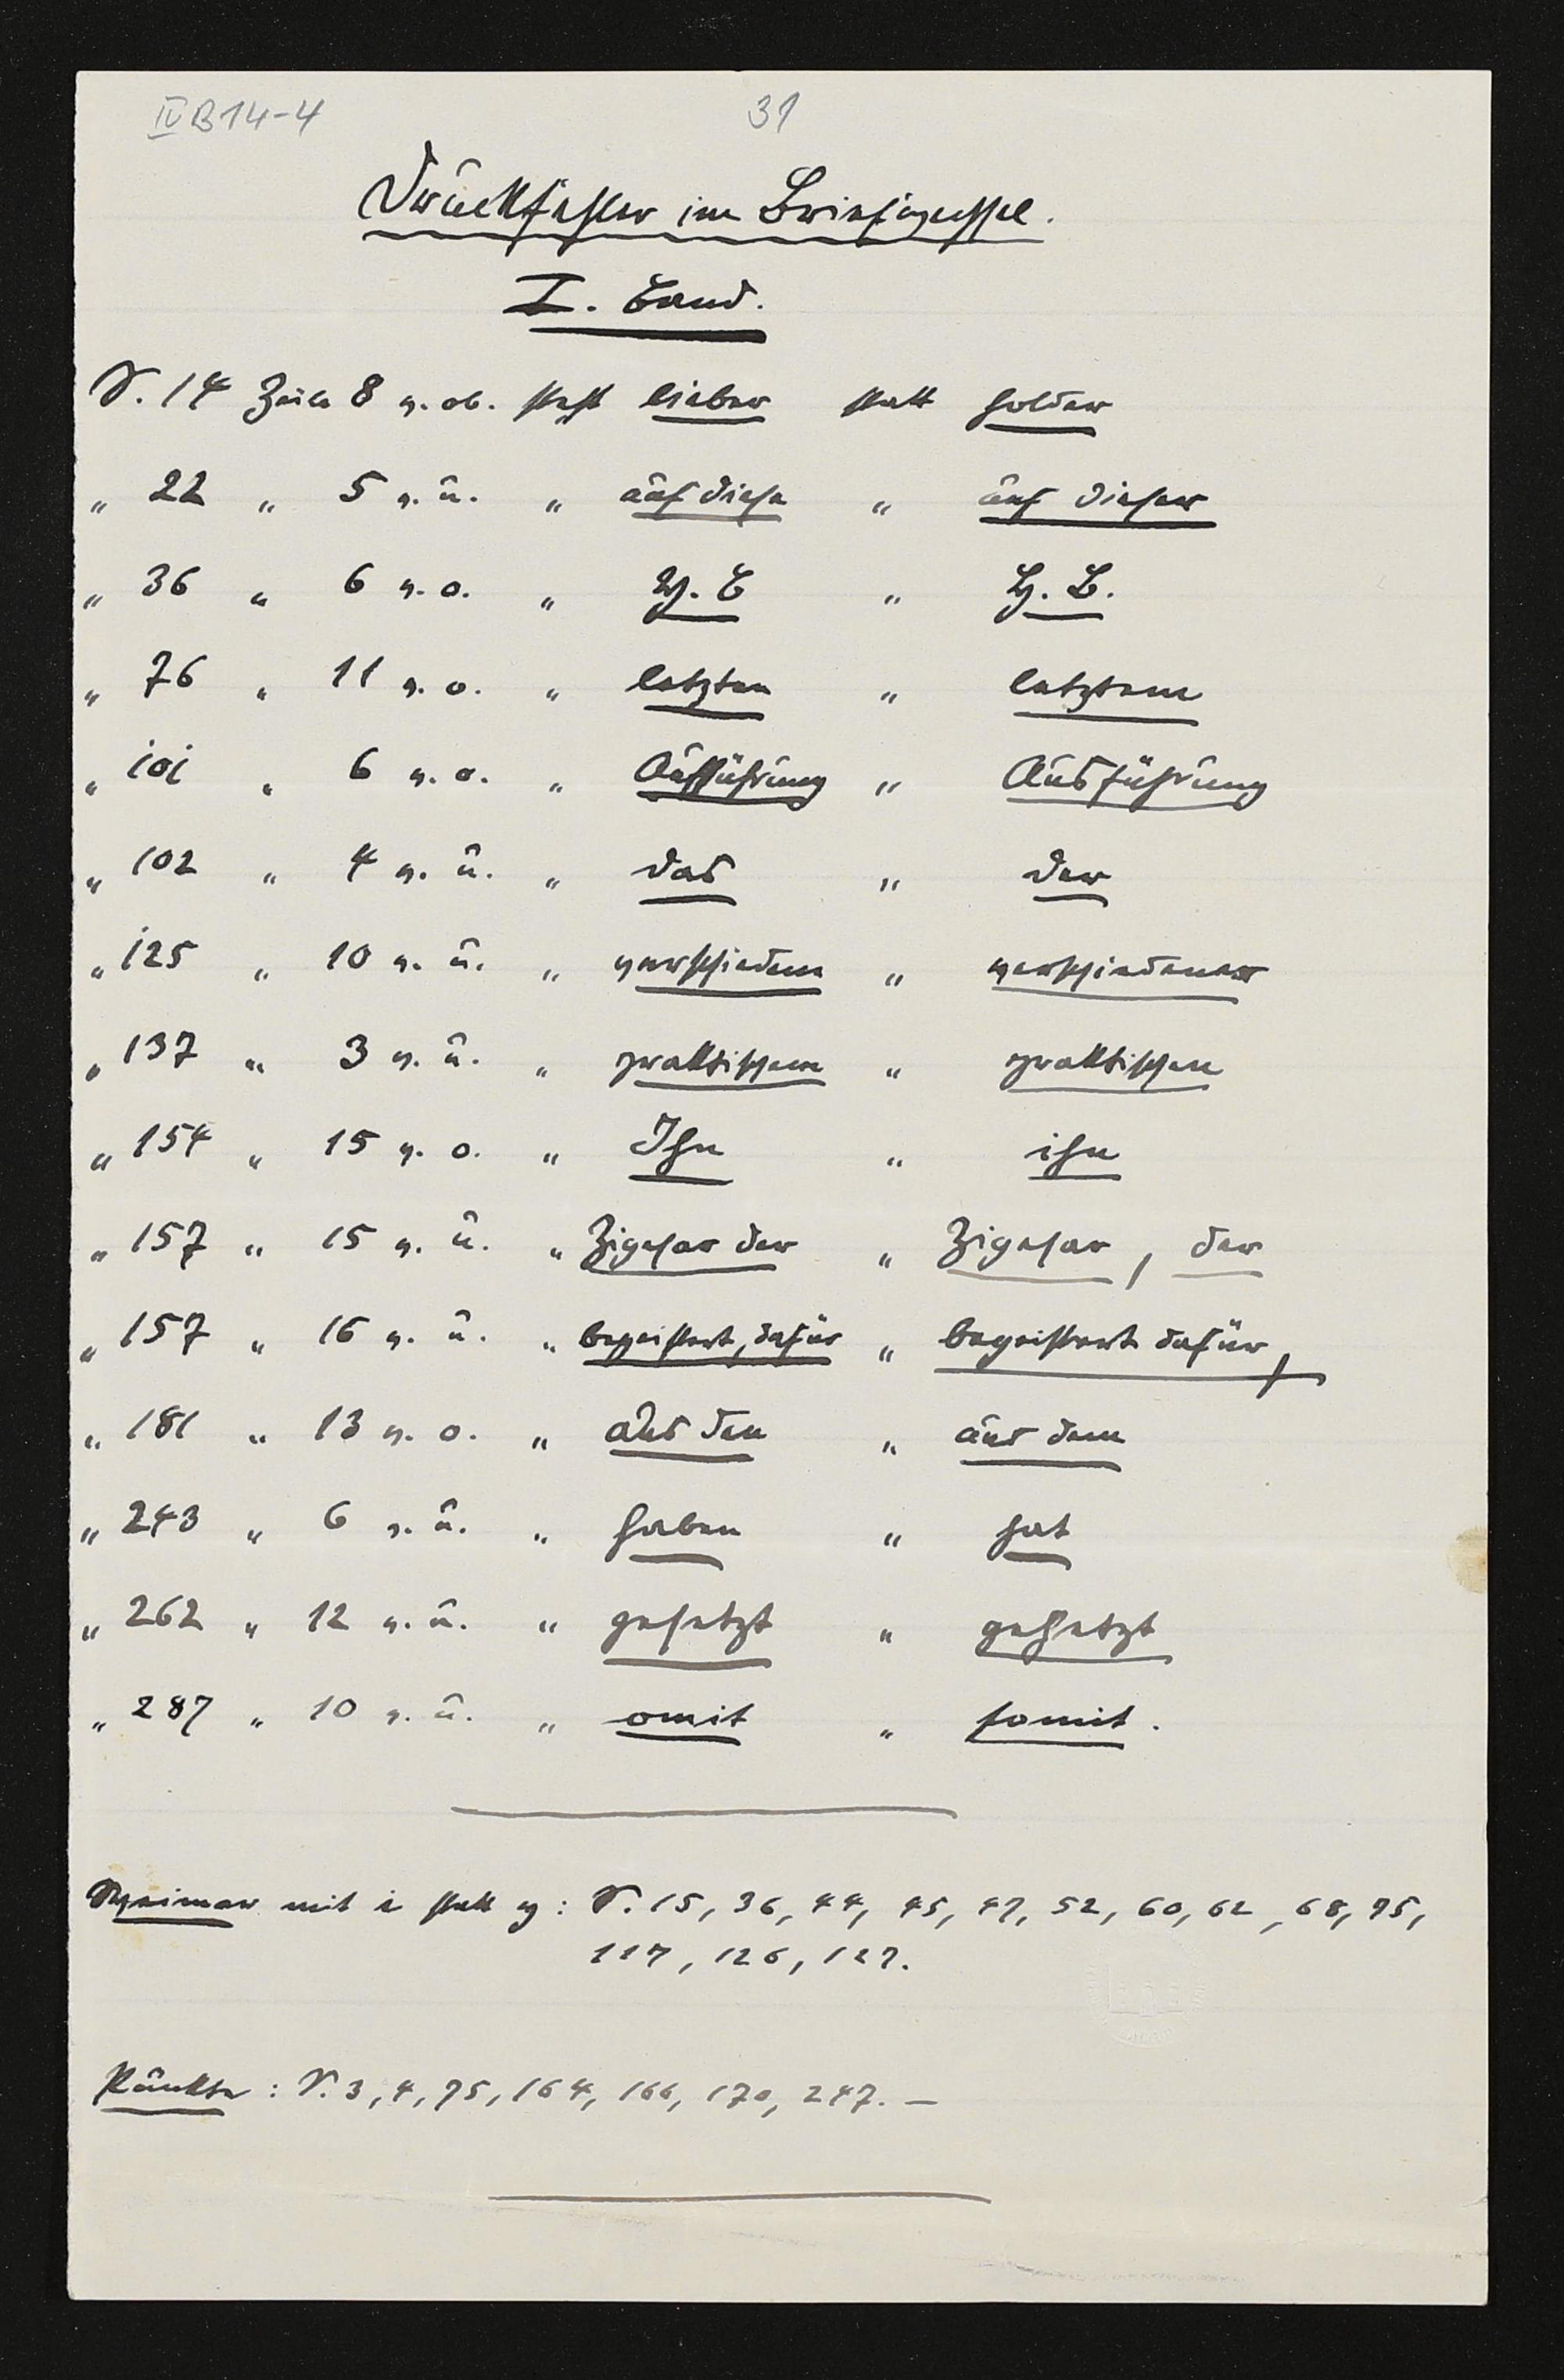 IV B 14-4
31
Druckfehler im Briefwechsel.
I. Band.
S. 14 Zeile 8 v. ob. steht lieber statt holder
" 22 " 5 v. u. " auf diese " auf dieser
" 36 " 6 v. o. " B " B.
" 76 " 11 v. o. " letzten " letztem
" 101 " 6 v. o. " Aufführung " Ausführung
" 102 " 4 v. u. " das " der
" 125 " 10 v. u. " verschiedene " verschiedener
" 137 " 3 v. u. " praktischem " praktischen
" 154 " 15 v. o. " Ihn " ihn
" 157 " 15 v. u. " Zigesar der " Zigesar, der
" 157 " 16 v. u. " begeistert, dafür " begeistert dafür,
" 181 " 13 v. o. " aus den " aus dem
" 243 " 6 v. u. " haben " hat
" 262 " 12 v. u. " gesetzt " gehetzt
" 287 " 10 v. u. " omit " somit.
mit i statt y: S. 15, 36, 44, 45, 47, 52, 60, 62, 68, 75,
117, 126, 127.
Punkte: S. 3, 4, 75, 164, 166, 170, 247. —